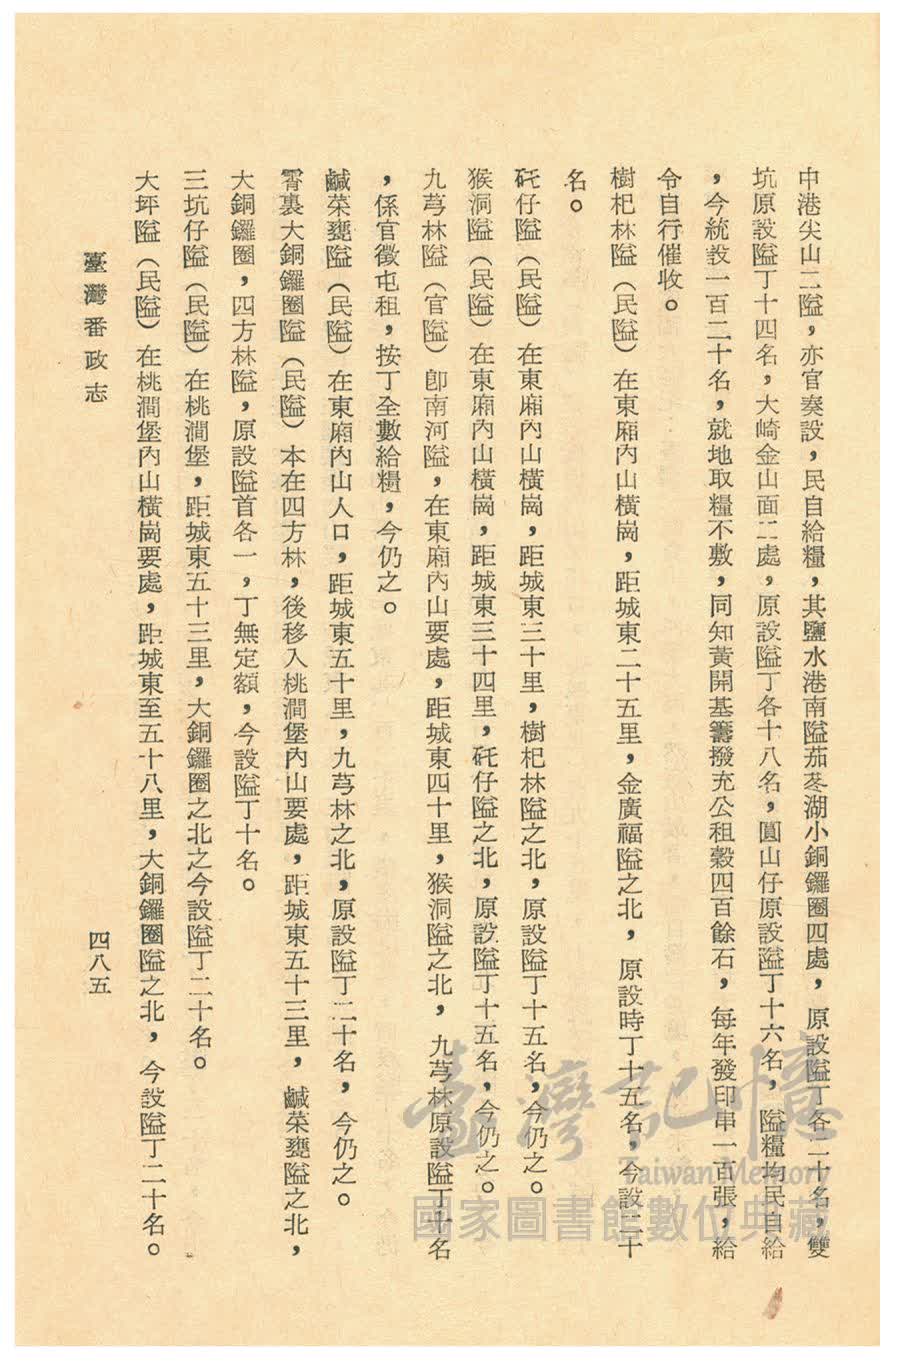 中港尖山二隘，亦官奏設，民自給糧，其鹽水港南隘茄苳湖小銅鑼圈四處，原設隘丁各二十名，雙
坑原設隘丁十四名，大崎金山面二處，原設隘丁各十八名，圓山仔原設隘丁十六名，隘糧均民自給
，今統設一百二十名，就地取糧不敷，同知黃開基籌撥充公租穀四百餘石，每年發印串一百張，給
令自行催收。
樹杞林隘（民隘）在東廂內山橫崗，距城東二十五里，金廣福隘之北，原設時丁十五名，今設二十
名。
矺仔隘（民隘）在東廂內山橫崗，距城東三十里，樹杞林隘之北，原設隘丁十五名，今仍之。
猴洞隘（民隘）在東廂內山橫崗，距城東三十四里，矺仔隘之北，原設隘丁十五名，今仍之。
九芎林隘（官隘）卽南河隘，在東廂內山要處，距城東四十里，猴洞隘之北，九芎林原設隘丁十名
，係官徵屯租，按丁全數給糧，今仍之。
鹹菜甕隘（民隘）在東廂內山人口，距城東五十里，九芎林之北，原設隘丁二十名，今仍之。
霄裏大銅鑼圈隘（民隘）本在四方林，後移入桃澗堡內山要處，距城東五十三里，鹹菜甕隘之北，
大銅鑼圈，四方林隘，原設隘首各一，丁無定額，今設隘丁十名。
三坑仔隘（民隘）在桃澗堡，距城東五十三里，大銅鑼圈之北之今設隘丁二十名。
大坪隘（民隘）在桃澗堡內山橫崗要處，距城東至五十八里，大銅鑼圈隘之北，今設隘丁二十名。
臺灣番政志
四八五
臺灣記憶
Taiwan Memory
國家圖書館數位典藏